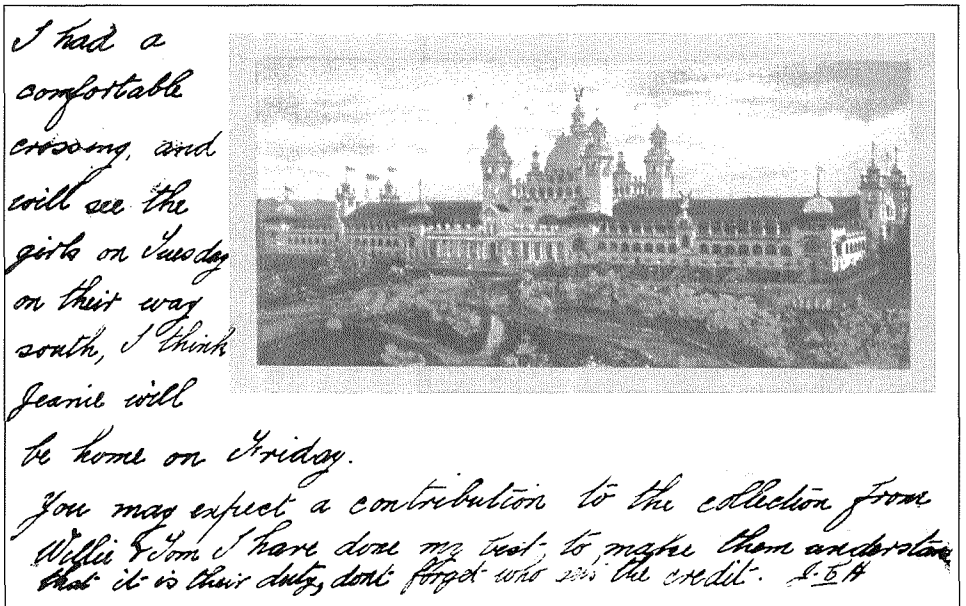 I had a
comfortable
crossing, and
will see the
girls on Tuesday
on their way
south, I think
Jeanie will
be home on Friday.
You may expect a contribution to the collection from
Willie & Tom I have done my best to make them understand
that it is their duty, dont forget who the credit.